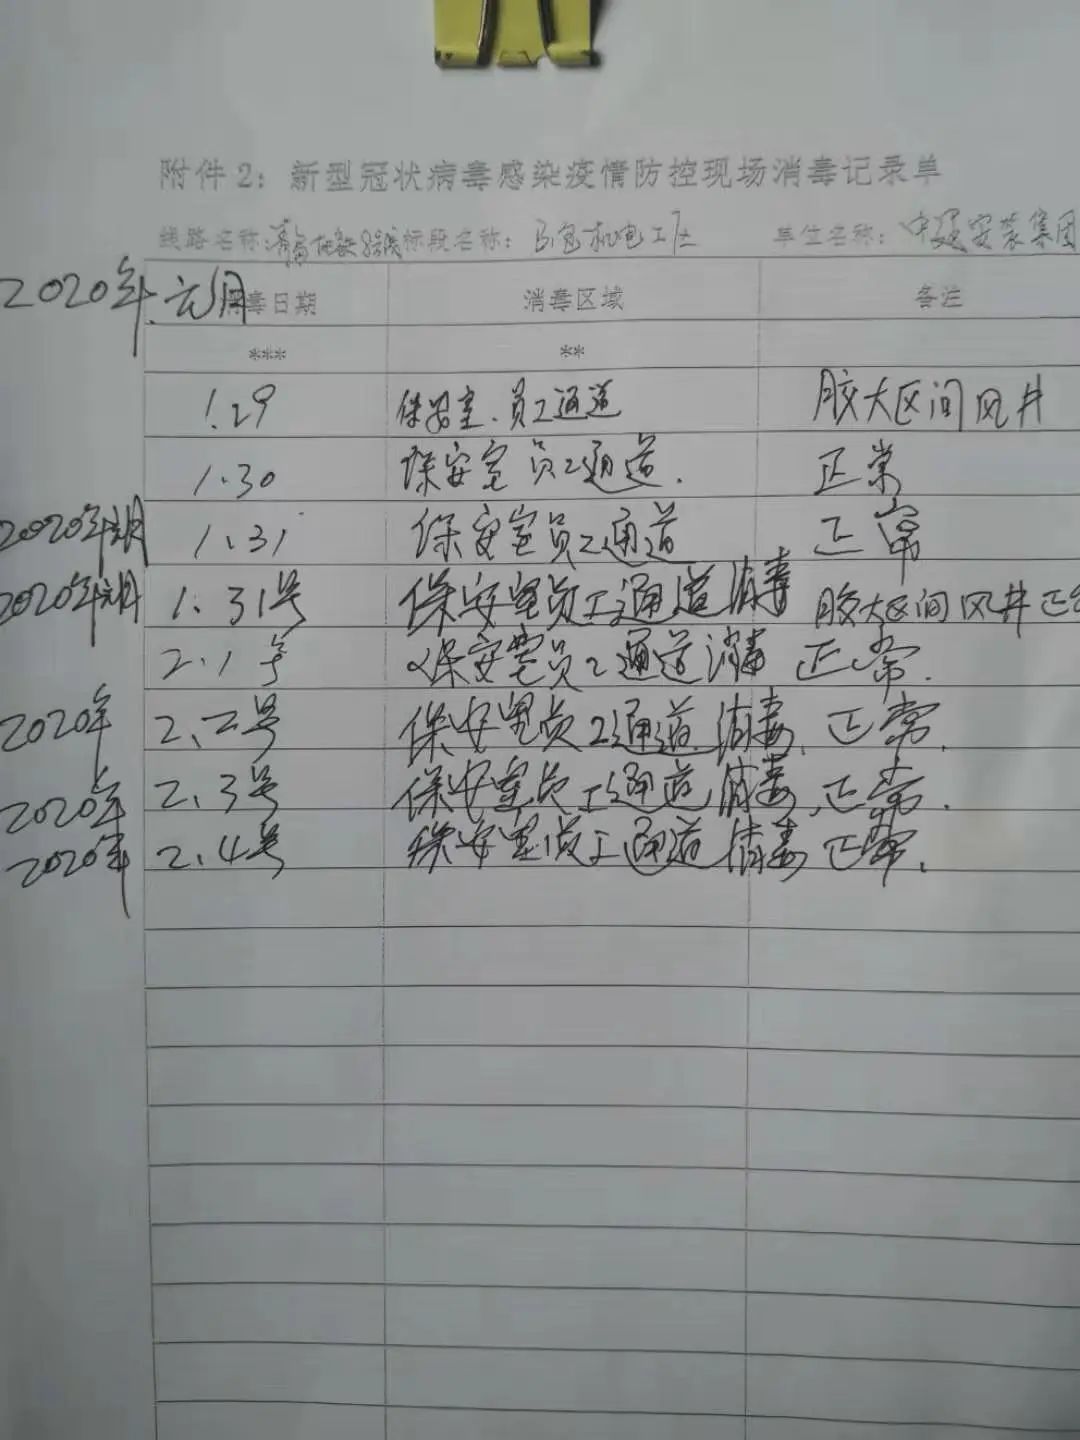 附件2：新型冠状病毒感染疫情防控现场消毒记录单
线路名称：青岛地铁8号线 标段名称：B包机电工区 单位名称：中建安装集团
2020年.元月 消毒日期 消毒区域 备注
*** **
1.29 保安室、员工通道 胶大区间风井
1.30 保安室员工通道. 正常
2020年元月 1.31 保安室员工通道 正常
2020年元月 1.31号 保安室员工通道消毒 胶大区间风井正
2.1号 保安室员工通道消毒 正常.
2020年 2.二号 保安室员工通道消毒、正常.
2020年 2、3号 保安室员工通道消毒、正常.
2020年 2.4号 保安室员工通道消毒 正常.